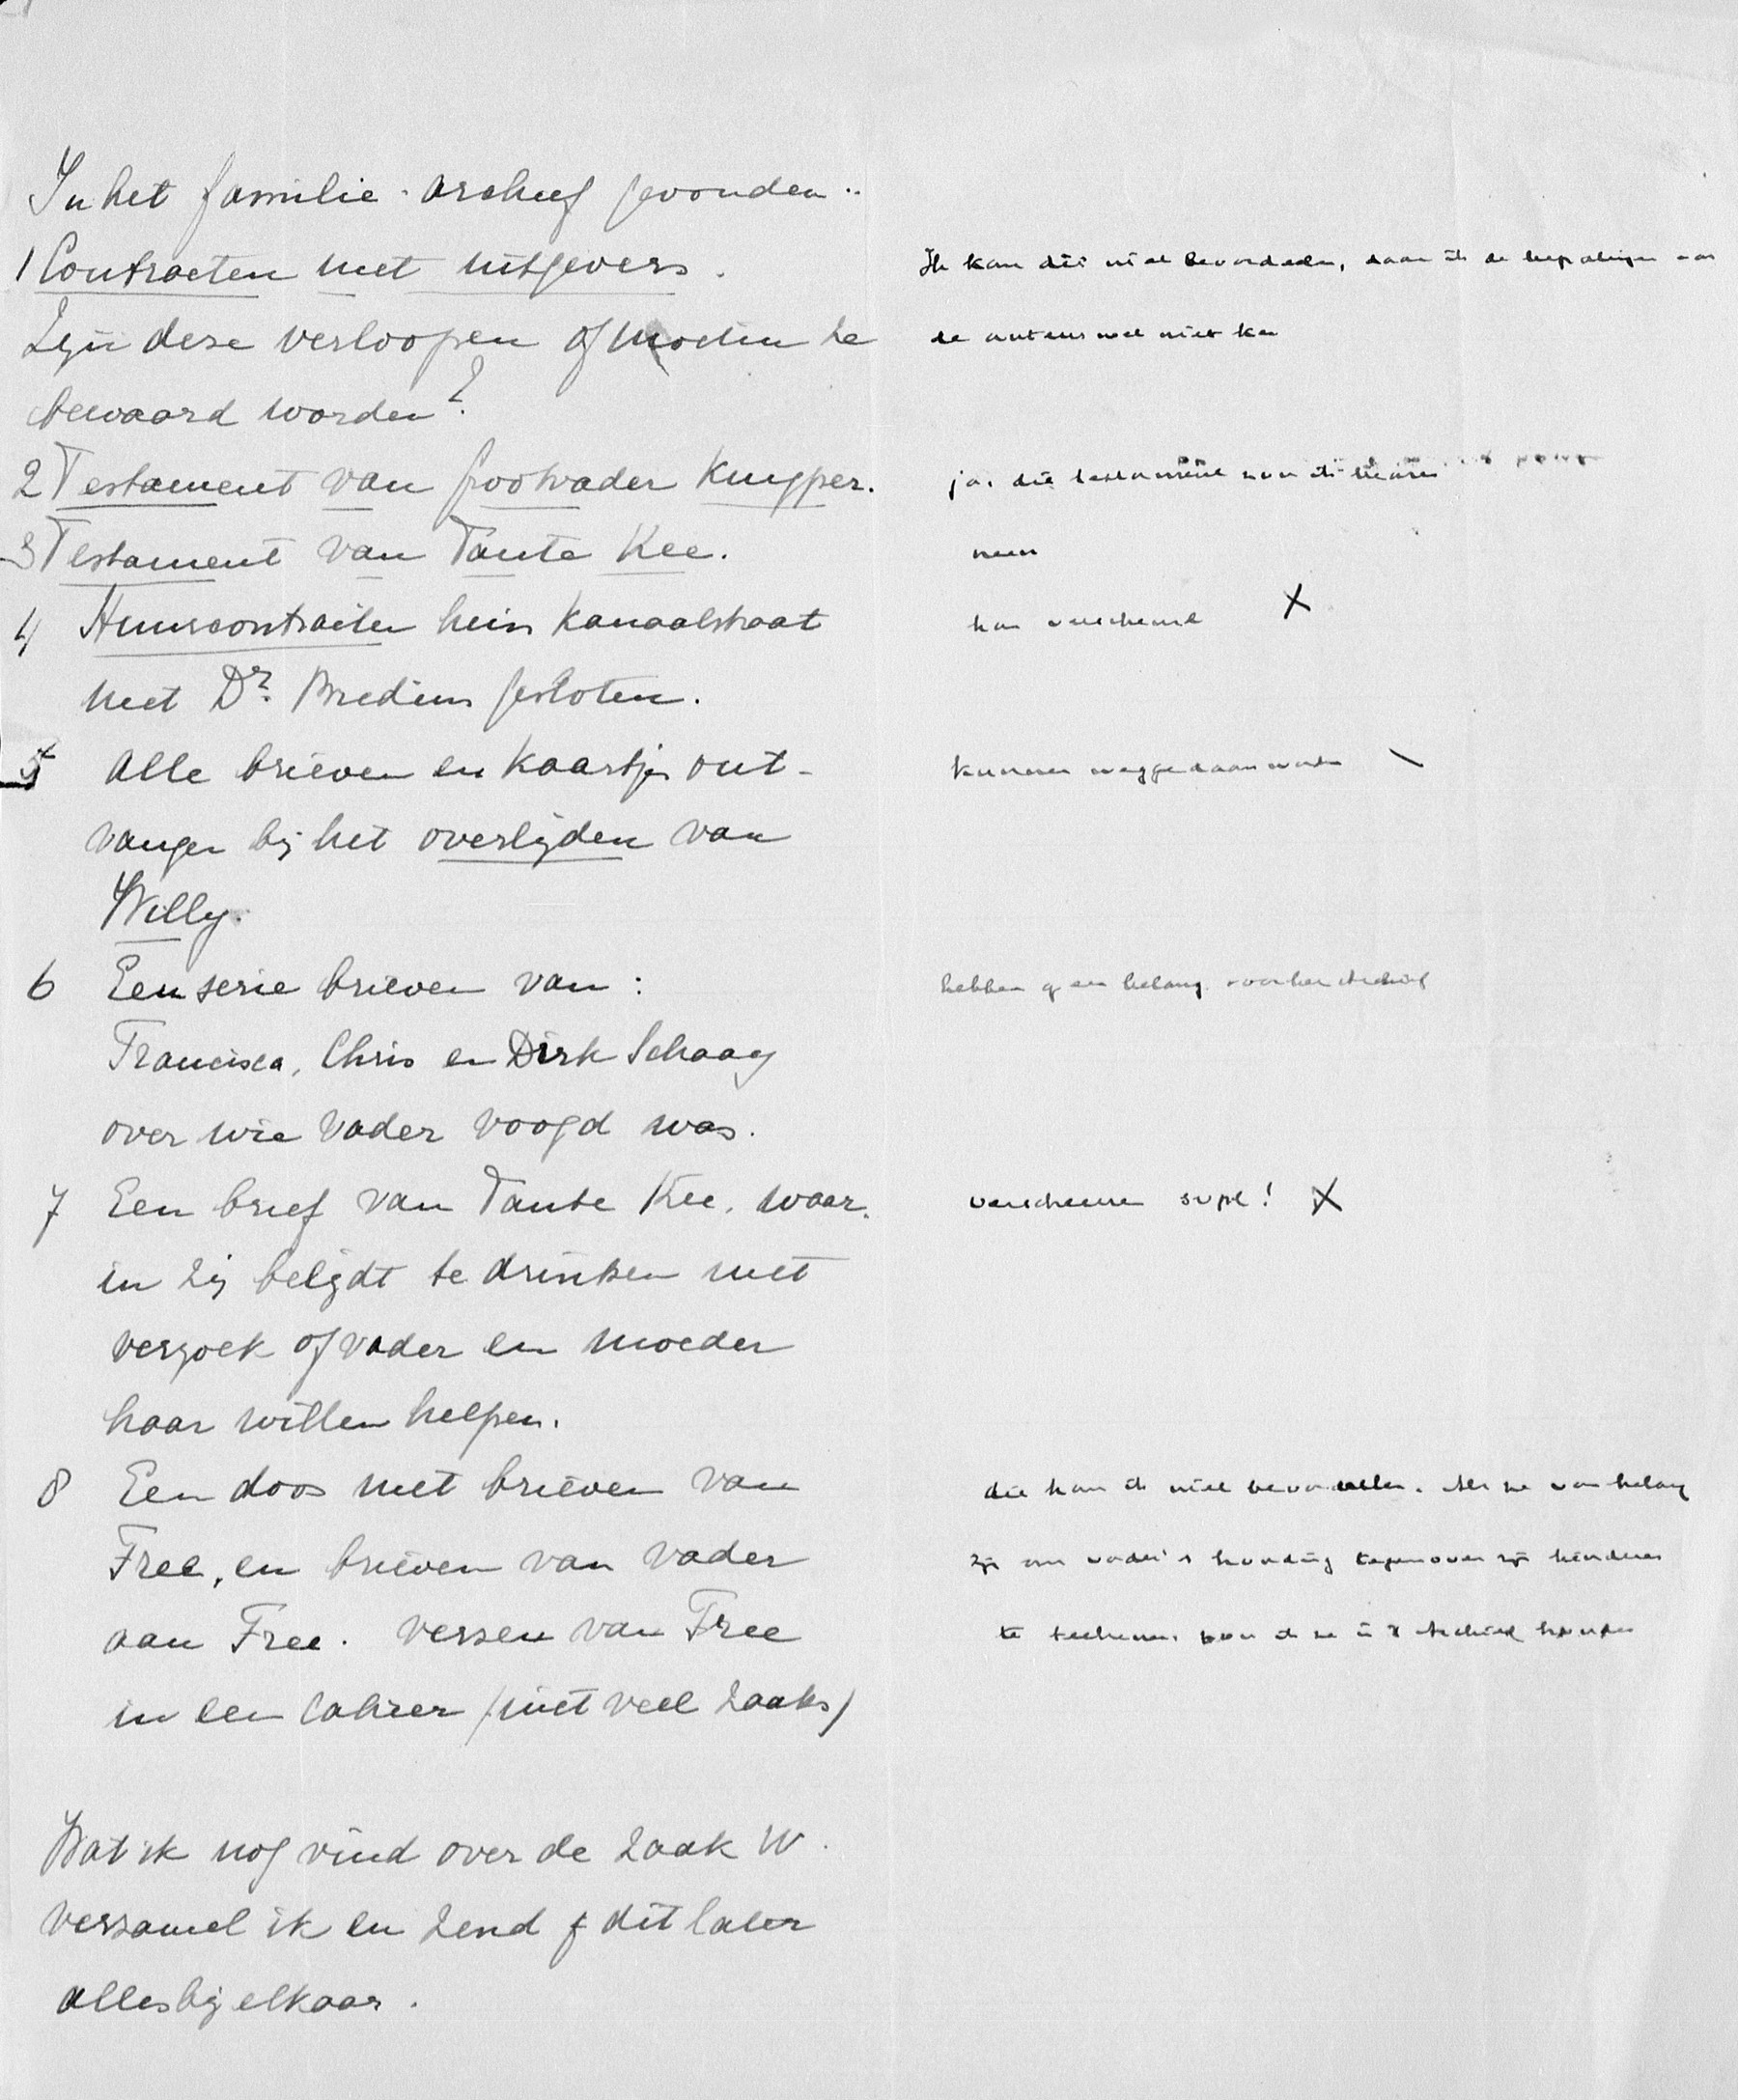 In het familie-archief gevonden:
1 Contracten met uitgevers.
Zijn deze verloopen of moeten ze
bewaard worden?
2 Testament van Grootvader Kuyper.
3 Testament van Tante Kee.
4 Huurcontracten huis Kanaalstraat
met Dr. Bredius gesloten.
5 Alle brieven en kaartjes ont-
vangen bij het overlijden van
Willy.
6 Een serie brieven van:
Francisca, Chris en Dirk Schaay
over wie Vader voogd was.
7 Een brief van Tante Kee, waar-
in zij belijdt te drinken met
verzoek of vader en moeder
haar willen helpen.
8 Een doos met brieven van
Free, en brieven van Vader
aan Free. Verzen van Free
in een cahier (niet veel zaaks)
Wat ik nog vind over de zaak W.
verzamel ik en zend je dit later
alles bij elkaar.
Ik kan dit niet beoordeelen, daar ik de bepalingen van
de auteurswet niet ken
ja, die testament zou ik
neen
kan verscheurd X
kunnen weggedaan worden \
hebben geen belang voor het Archief
verscheuren svpl! X
die kan ik niet beoordeelen. Als ze van belang
zijn om vader's houding tegenover zijn kinderen
te teekenen, zou ik ze in 't Archief houden